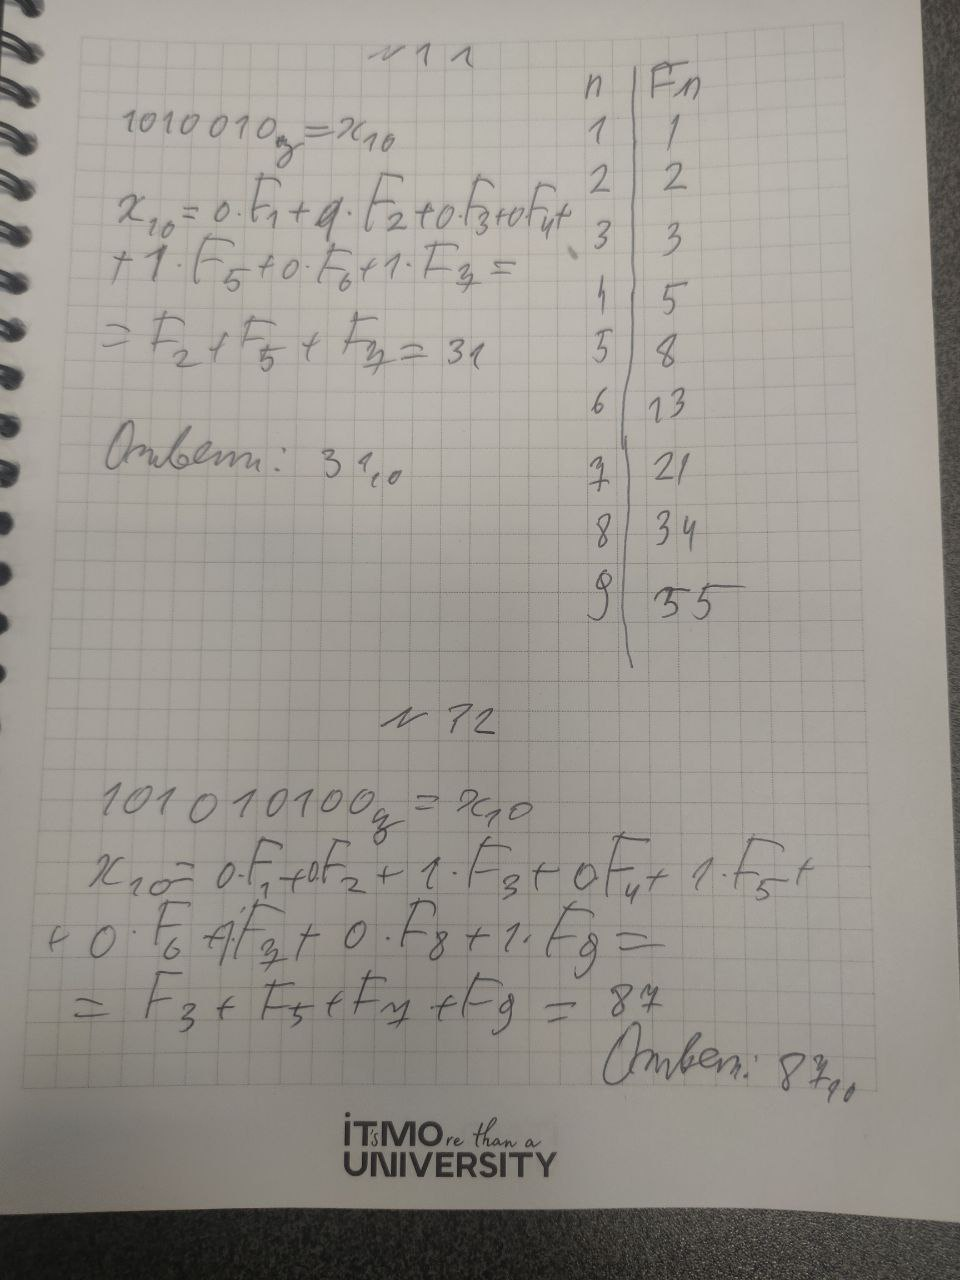 № 11
1010010_з = x_10
x_10 = 0·F_1 + 1·F_2 + 0·F_3 + 0F_4 +
+ 1·F_5 + 0·F_6 + 1·F_7 =
= F_2 + F_5 + F_7 = 31
Ответ: 31_10
n | Fn
1 | 1
2 | 2
3 | 3
4 | 5
5 | 8
6 | 13
7 | 21
8 | 34
9 | 55
№ 12
101010100_з = x_10
x_10 = 0·F_1 + 0F_2 + 1·F_3 + 0F_4 + 1·F_5 +
+ 0·F_6 + 1·F_7 + 0·F_8 + 1·F_9 =
= F_3 + F_5 + F_7 + F_9 = 87
Ответ: 87_10
iT'sMOre than a
UNIVERSITY